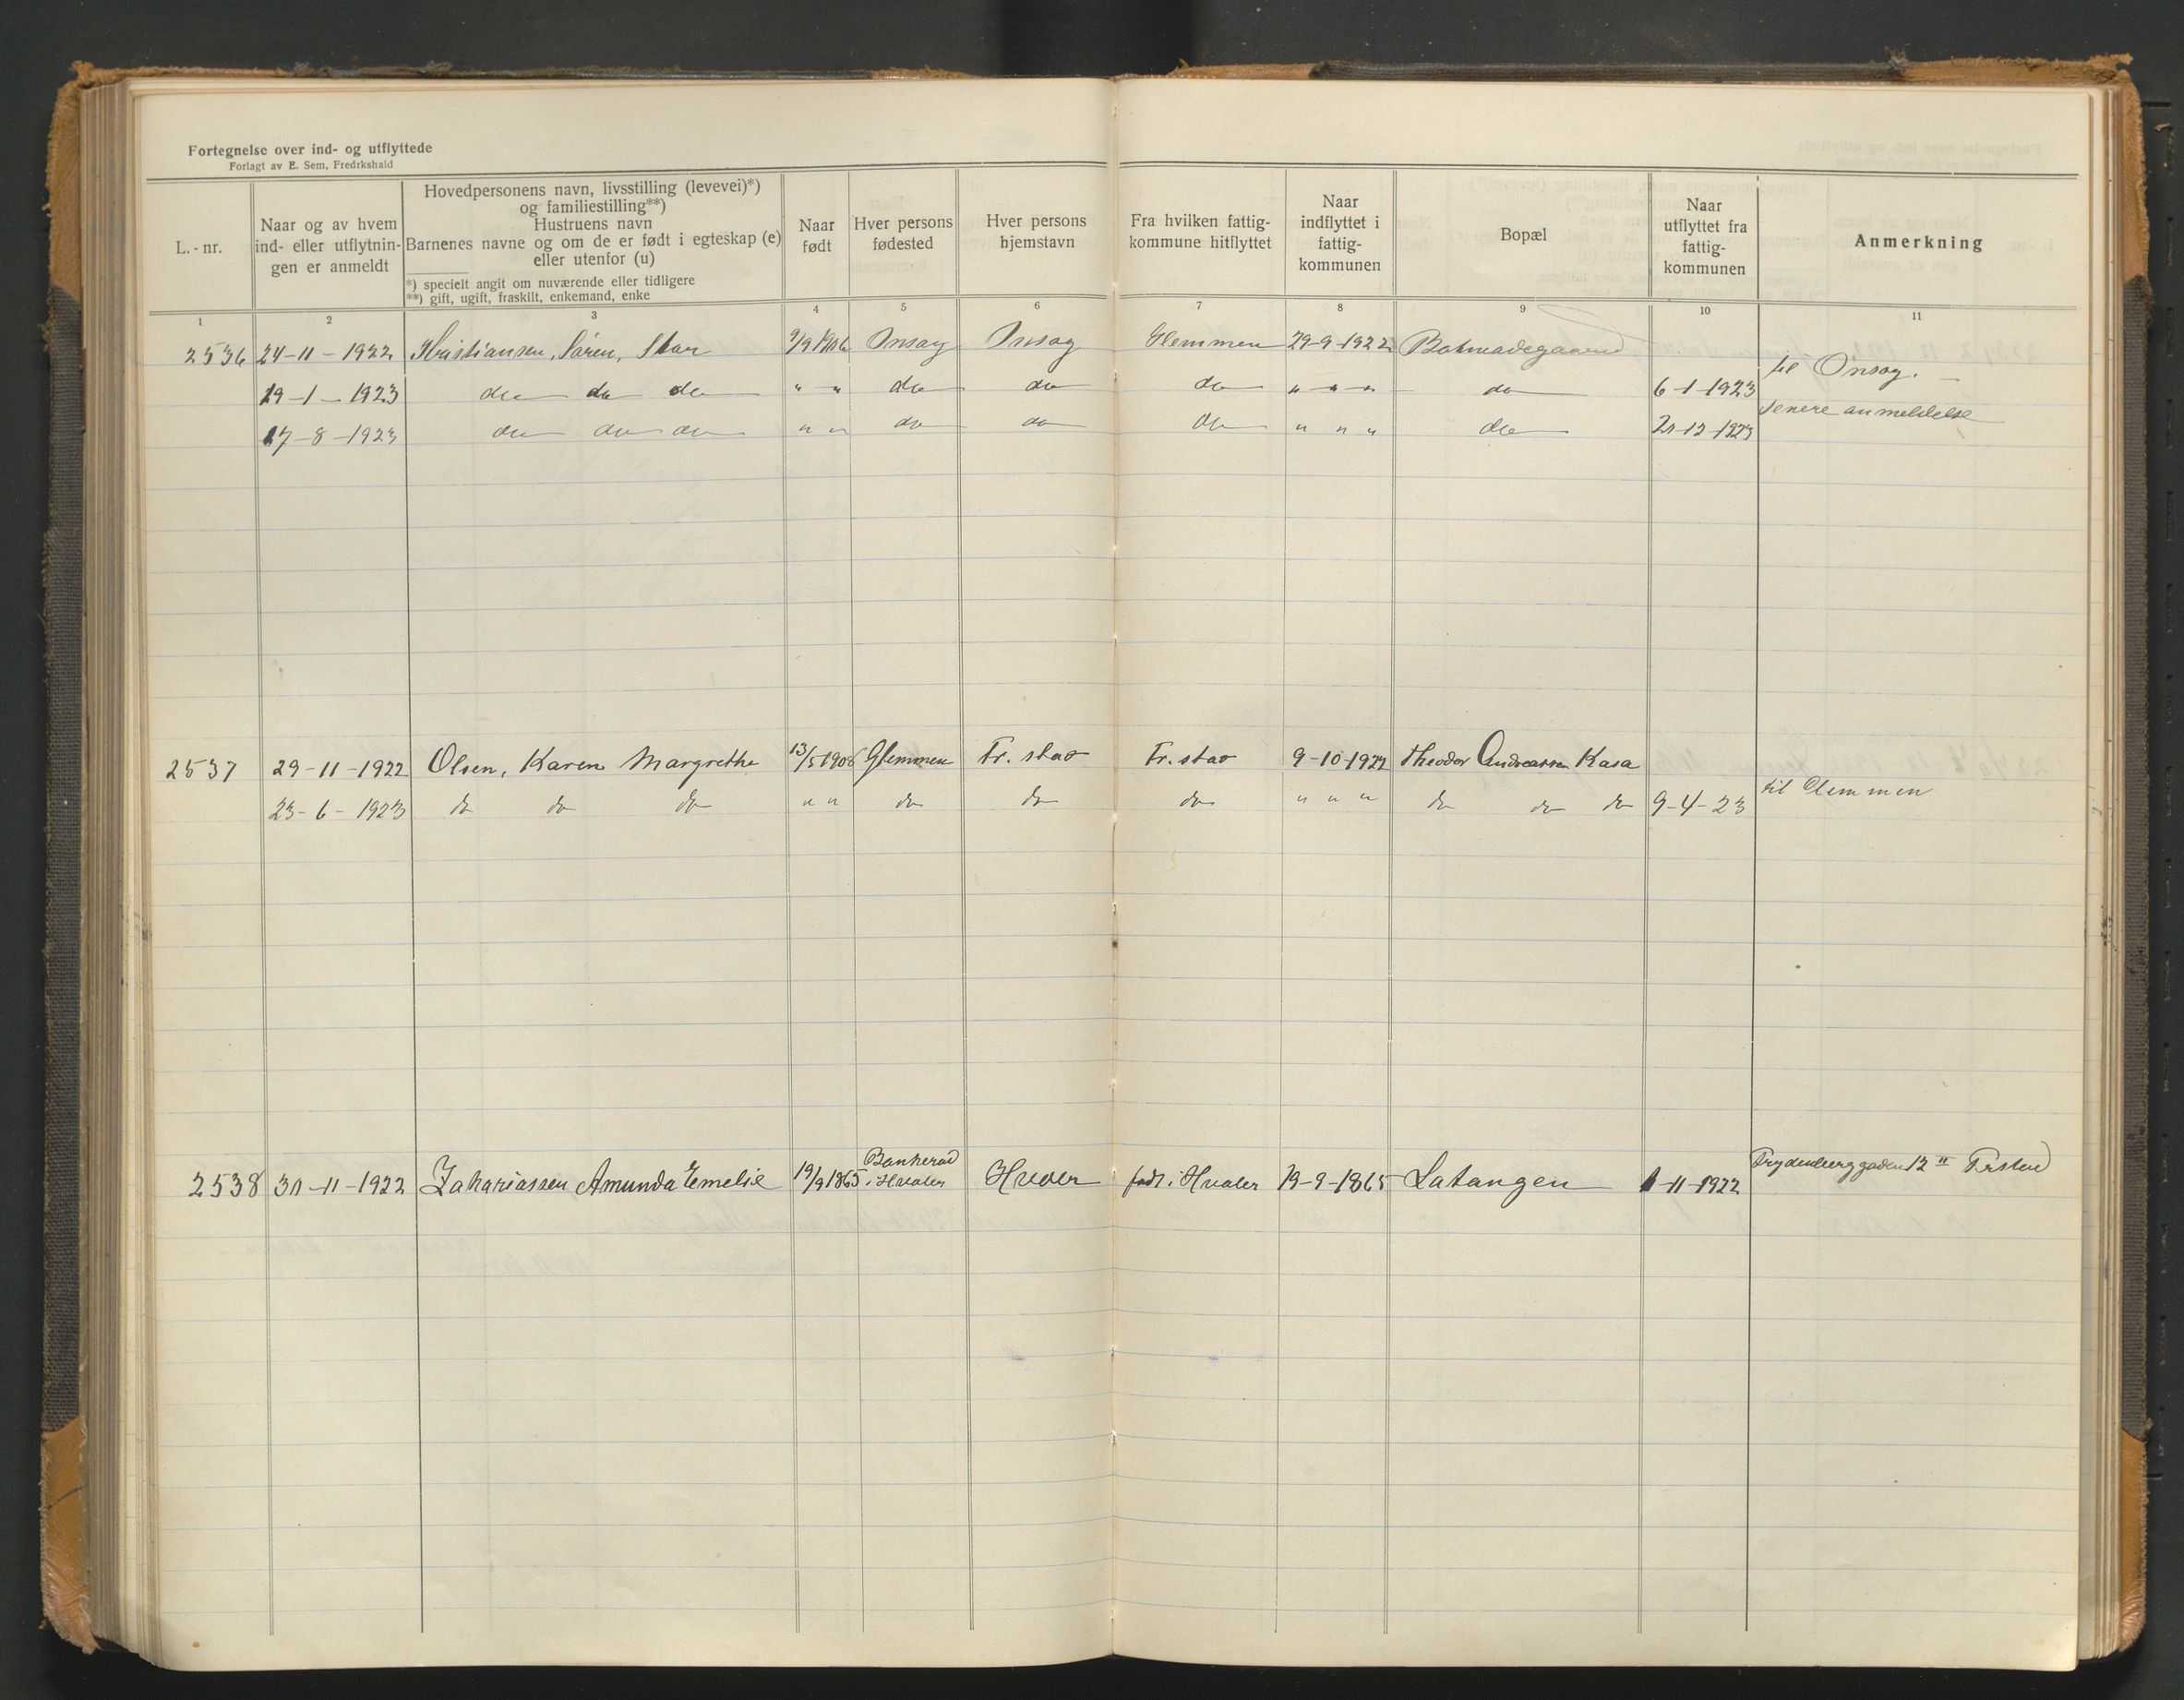 Fortegnelse over ind- og utflyttede
Forlagt av E. Sem, Fredrkshald
L.-nr.
Naar og av hvem ind- eller utflytnin-gen er anmeldt
Hovedpersonens navn, livsstilling (levevei)*)
og familiestilling**)
Hustruens navn
Barnenes navne og om de er født i egteskap (e)
eller utenfor (u)
*) specielt angit om nuværende eller tidligere
**) gift, ugift, fraskilt, enkemand, enke
Naar født
Hver persons fødested
Hver persons hjemstavn
Fra hvilken fattig-kommune hitflyttet
Naar indflyttet i fattig-kommunen
Bopæl
Naar utflyttet fra fattig-kommunen
Anmerkning
1 2 3 4 5 6 7 8 9 10 11
2536 24-11-1922 Kristiansen, Søren, Onsøy Onsøy Glemmen 29-9-1922
19-1-1923 do do do " " do do do " " " do 6-1-1923 til Onsøy.
17-8-1923 do do do " " do do do " " " do senere anmeldelse
2537 29-11-1922 Olsen, Karen Margrethe 13/5 1906 Glemmen Fr. stad Fr. stad 9-10-1922 Theodor Andreassen Kasa
23-6-1923 do do do " " do do do " " " do do do 9-4-23 til Glemmen
2538 30-11-1922 Zahariassen Amunda Emelie 19/9 1865 Bankerud i Hvaler Hvaler født i Hvaler 19-9-1865 Latangen 1-11-1922 Frydenberggaden 12 II Frstad